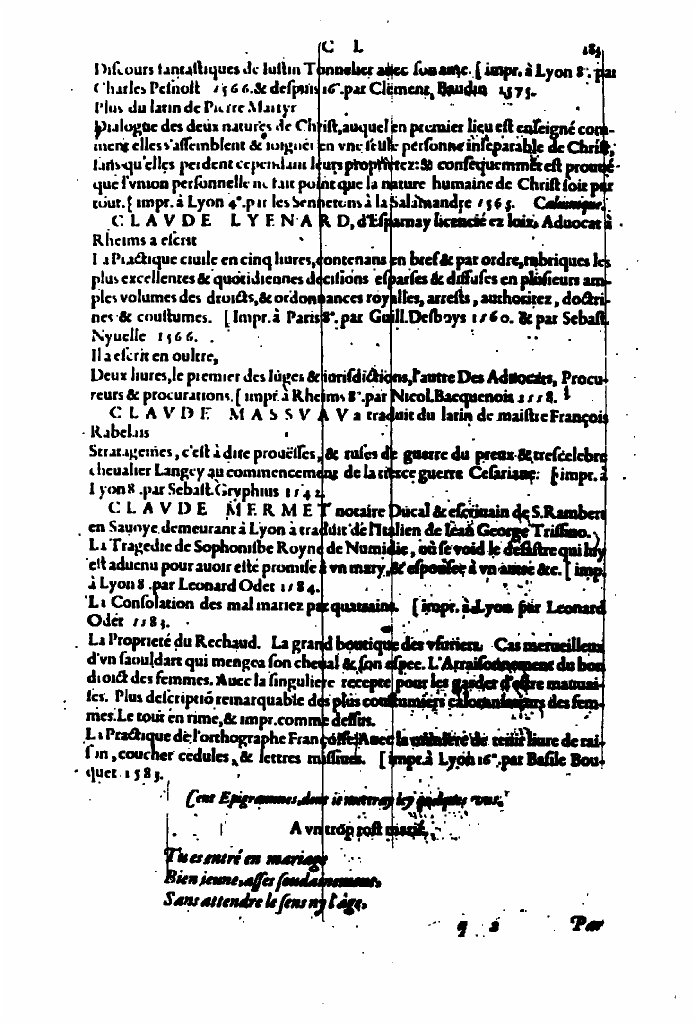 C L 185
Discours fantastiques de Iustin Tonnelier auec son ame. [impr. à Lyon 8°. par
Charles Pesnost 1566. & despuis 16°. par Clement Baudin 1575.
Plus du latin de Pierre Martyr
Dialogue des deux natures de Christ, auquel en premier lieu est enseigné com-
ment elles s'assemblent & ioignēt en vne seule personne inseparable de Christ,
sans qu'elles perdent cependant leurs proprietez: & consequemmēt est prouué
que l'vnion personnelle ne fait point que la nature humaine de Christ soit par
tout. [impr. à Lyon 4°. par les Sennetons à la Salamandre 1565. Calomnique.
CLAVDE LYENARD, d'Esparnay licencié ez loix, Aduocat à
Rheims a escrit
La Practique ciuile en cinq liures, contenans en bref & par ordre, rubriques les
plus excellentes & quotidiennes decisions esparses & diffuses en plusieurs am-
ples volumes des droicts, & ordonnances royalles, arrests, authoritez, doctri-
nes & coustumes. [Impr. à Paris 8°. par Guill. Desboys 1560. & par Sebast.
Nyuelle 1566.
Il a escrit en oultre,
Deux liures, le premier des Iuges & iurisdictions, l'autre Des Aduocats, Procu-
reurs & procurations. [impr. à Rheims 8°. par Nicol. Bacquenois 1558.
CLAVDE MASSVAV a traduit du latin de maistre François
Rabelais
Stratagemes, c'est à dire prouësses, & ruses de guerre du preux & trescelebre
cheualier Langey au commencement de la tierce guerre Cesariane: [impr. à
Lyon 8. par Sebast. Gryphius 1542.
CLAVDE MERMET notaire Ducal & escriuain de S. Rambert
en Sauoye, demeurant à Lyon à traduit de l'Italien de Iean George Trissino.
La Tragedie de Sophonisbe Royne de Numidie, où se void le desastre qui luy
est aduenu pour auoir esté promise à vn mary, & espousée à vn autre &c. [imp.
à Lyon 8. par Leonard Odet 1584.
La Consolation des mal mariez par quatrains. [impr. à Lyon par Leonard
Odet 1583.
La Proprieté du Rechaud. La grand boutique des vsuriers. Cas merueilleux
d'vn saouldart qui mengea son cheual & son espee. L'Arraisonnement du bon
droict des femmes. Auec la singuliere recepte pour les garder d'estre mauuai-
ses. Plus descriptiō remarquable des plus coustumiers calomniateurs des fem-
mes. Le tout en rime, & impr. comme dessus.
La Practique de l'orthographe Françoise, Auec la maniere de tenir liure de rai-
son, coucher cedules, & lettres missiues. [impr. à Lyon 16°. par Basile Bou-
quet 1583.
Cent Epigrammes, dont ie mettray icy quelques vns.
A vn trop tost marié.
Tu es entré en mariage
Bien ieune, asses soudainement,
Sans attendre le sens ny l'âge,
q 2 Par